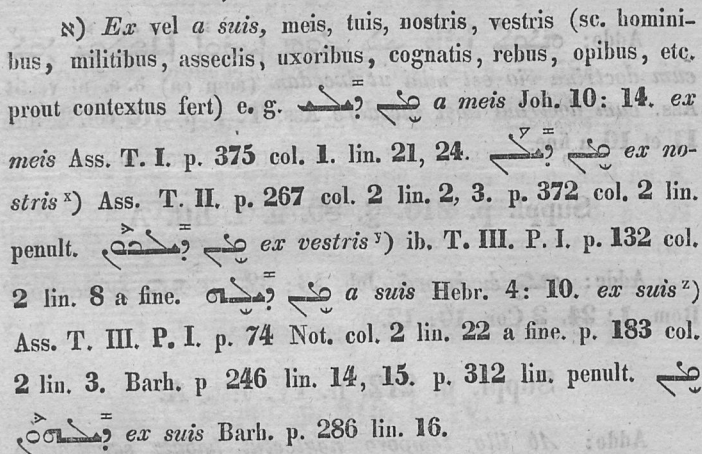 א) Ex vel a suis, meis, tuis, nostris, vestris (sc. homini-
bus, militibus, asseclis, uxoribus, cognatis, rebus, opibus, etc.
prout contextus fert) e. g. ܡܢ ܕܝܠܝ a meis Joh. 10: 14. ex
meis Ass. T. I. p. 375 col. 1. lin. 21, 24. ܡܢ ܕܝܠܢ ex no-
stris ˣ) Ass. T. II. p. 267 col. 2 lin. 2, 3. p. 372 col. 2 lin.
penult. ܡܢ ܕܝܠܟܘܢ ex vestris ʸ) ib. T. III. P. I. p. 132 col.
2 lin. 8 a fine. ܡܢ ܕܝܠܗ a suis Hebr. 4: 10. ex suis ᶻ)
Ass. T. III. P. I. p. 74 Not. col. 2 lin. 22 a fine. p. 183 col.
2 lin. 3. Barh. p 246 lin. 14, 15. p. 312 lin. penult. ܡܢ
ܕܝܠܗܘܢ ex suis Barh. p. 286 lin. 16.